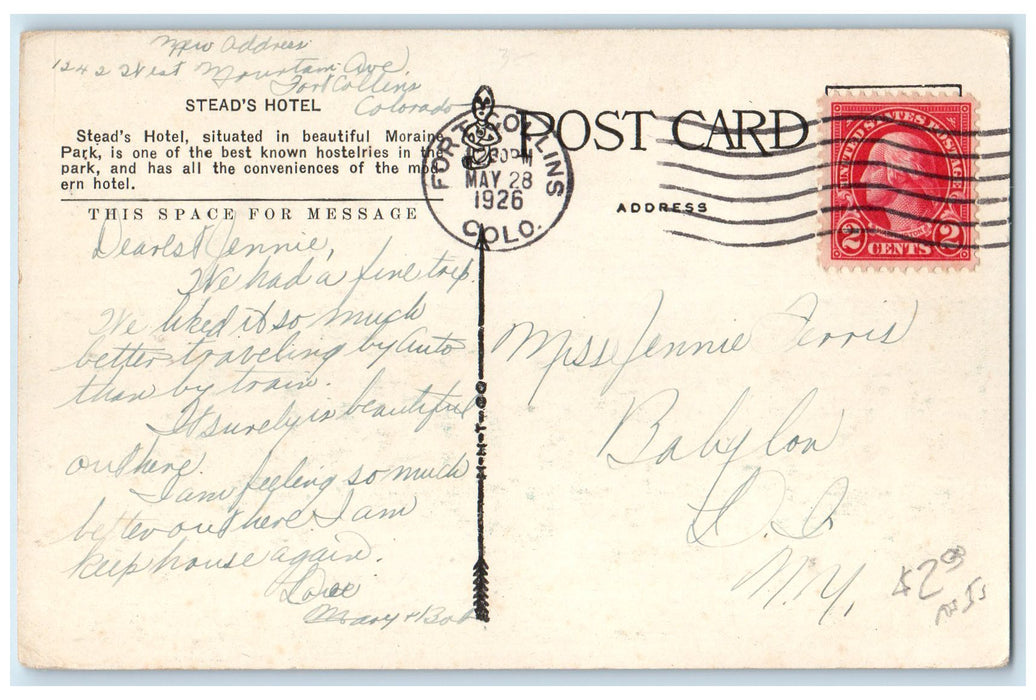 New Address
1242 West Mountain Ave,
Fort Collins
Colorado
STEAD'S HOTEL
Stead's Hotel, situated in beautiful Moraine
Park, is one of the best known hostelries in the
park, and has all the conveniences of the mod-
ern hotel.
THIS SPACE FOR MESSAGE
Dearest Jennie,
We had a fine trip.
We liked it so much
better traveling by auto
than by train.
It surely is beautiful
out here.
I am feeling so much
better out here I am
keep house again.
Love
Mary & Bob
H-H-T-CO
FORT COLLINS
30PM
MAY 28
1926
COLO.
POST CARD
ADDRESS
UNITED STATES POSTAGE
2 CENTS 2
Miss Jennie Ferris
Babylon
L. I.
N.Y.
$2